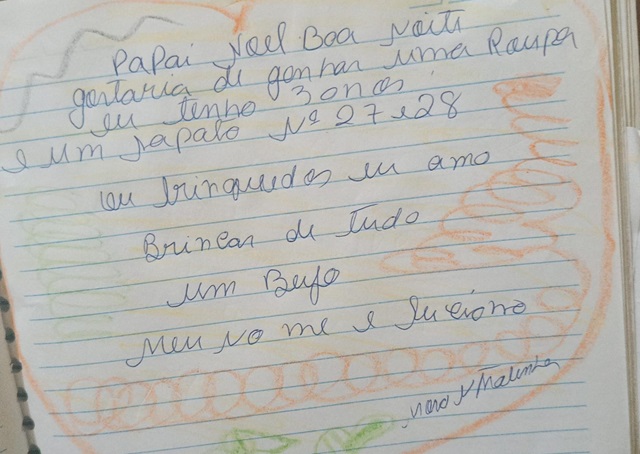 PaPai Noel Boa Noite
gostaria de ganhar uma Roupa
eu tenho 3 anos
e um sapato Nº 27 e 28
ou brinquedos eu amo
Brincar de Tudo
um Beijo
Meu No me e Luciano